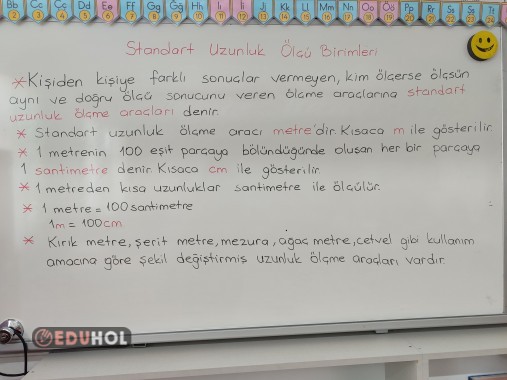 Bb Cc Çç Dd Ee Ff Gg Ğğ Hh Iı İi Jj Kk Ll Mm Nn Oo Öö Pp Rr Ss Şş Tt
2 3 4 5 6 7 8 9 10 11 12 13 14 15 16 17 18 19 20 21 22 23 24
Standart Uzunluk Ölçü Birimleri
* Kişiden kişiye farklı sonuçlar vermeyen, kim ölçerse ölçsün
aynı ve doğru ölçü sonucunu veren ölçme araçlarına standart
uzunluk ölçme araçları denir.
* Standart uzunluk ölçme aracı metre'dir. Kısaca m ile gösterilir.
* 1 metrenin 100 eşit parçaya bölündüğünde oluşan her bir parçaya
1 santimetre denir. Kısaca cm ile gösterilir.
* 1 metreden kısa uzunluklar santimetre ile ölçülür.
* 1 metre = 100 santimetre
1m = 100cm
* Kırık metre, şerit metre, mezura, ağaç metre, cetvel gibi kullanım
amacına göre şekil değiştirmiş uzunluk ölçme araçları vardır.
EDUHOL